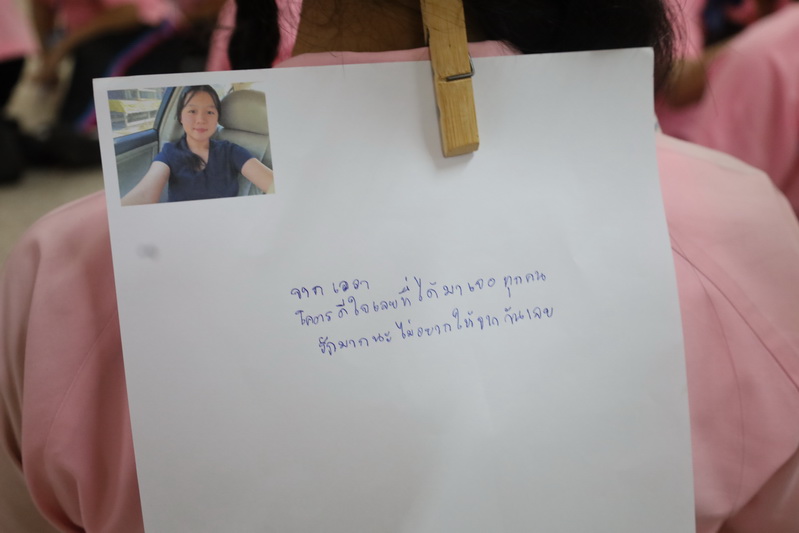 จาก เจจา
โคตรดีใจเลยที่ได้มาเจอทุกคน
รักมากนะ ไม่อยากให้จากกันเลย